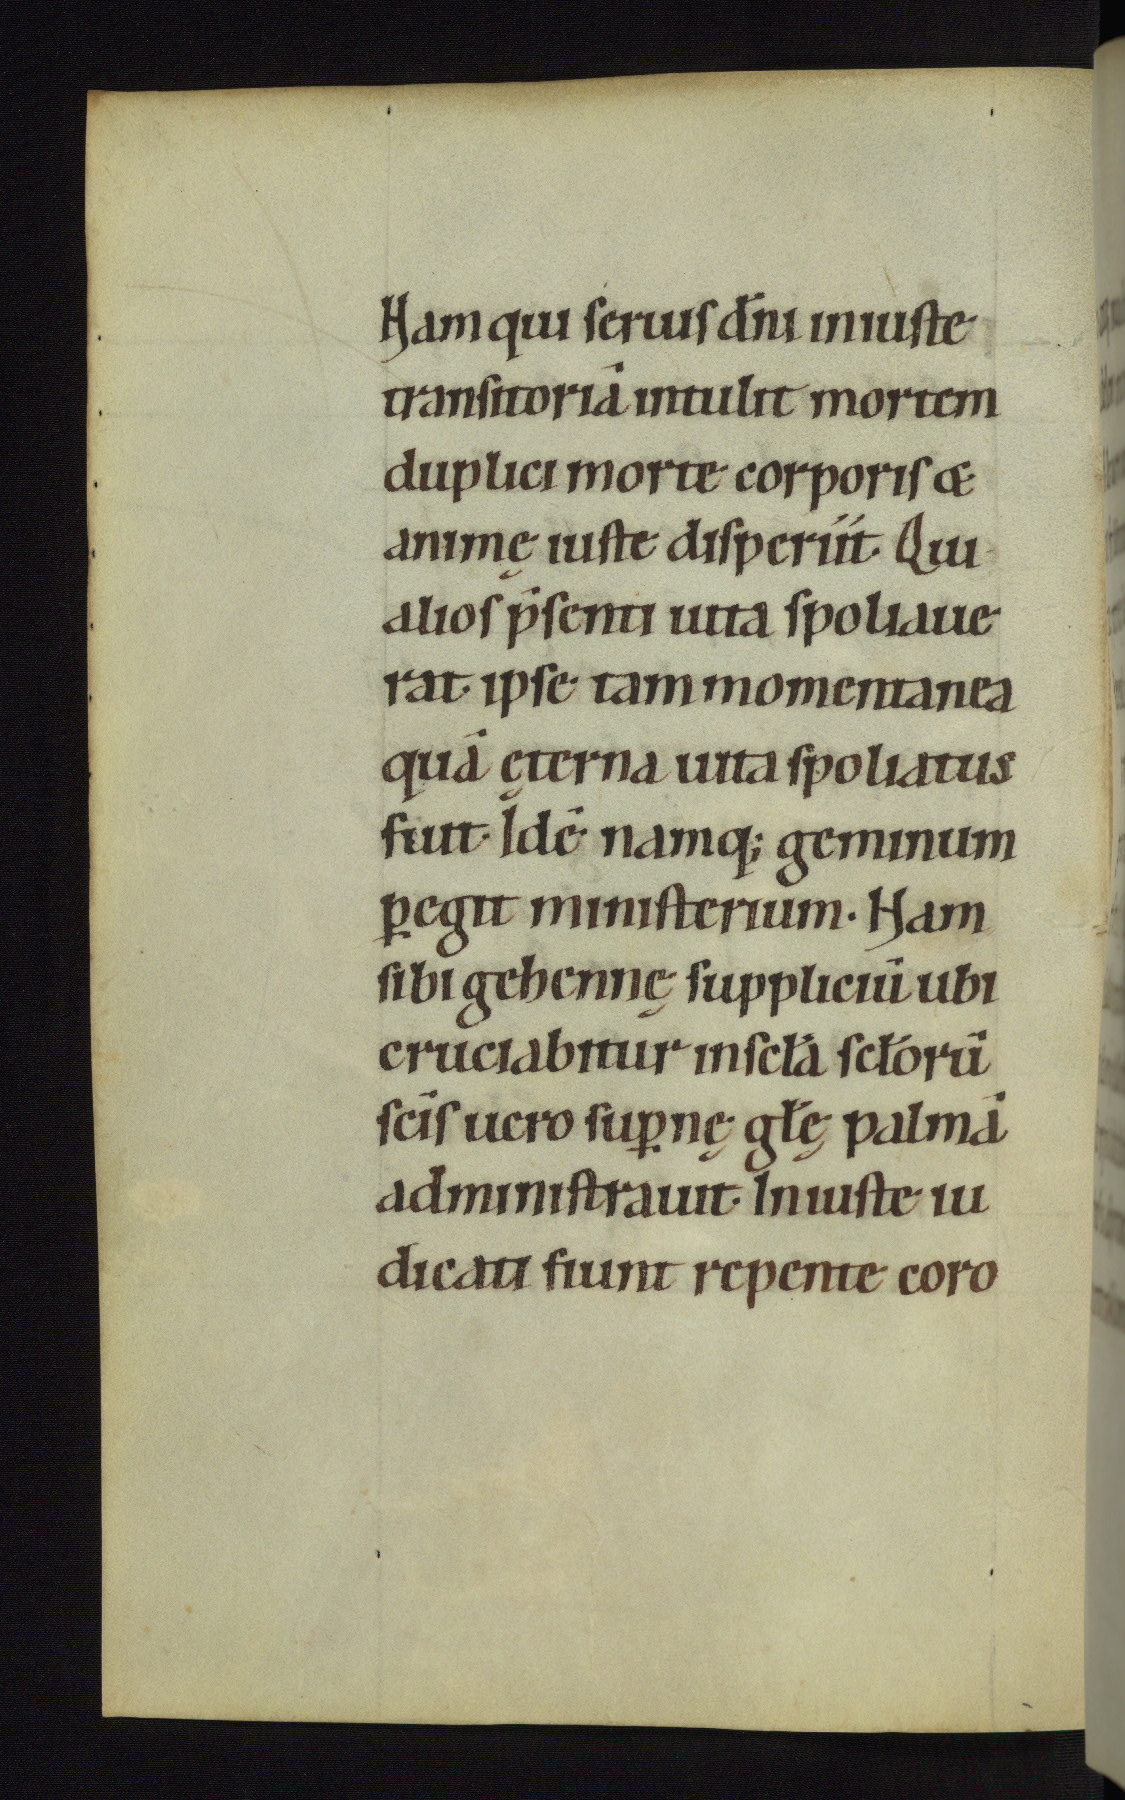 Nam qui seruis dn̄i iniuste
transitoriā intulit mortem
duplici morte corporis &
animę iuste disperiit. Qui
alios p̄senti uita spoliaue
rat. ipse tam momentanea
quā ęterna uita spoliatus
fuit. Idē namq; geminum
ꝑegit ministerium. Nam
sibi gehennę suppliciū ubi
cruciabitur in scl̄a scl̄orū
sc̄is uero suꝑnę gl̄ę palmā
administrauit. Iniuste iu
dicati fiunt repente coro